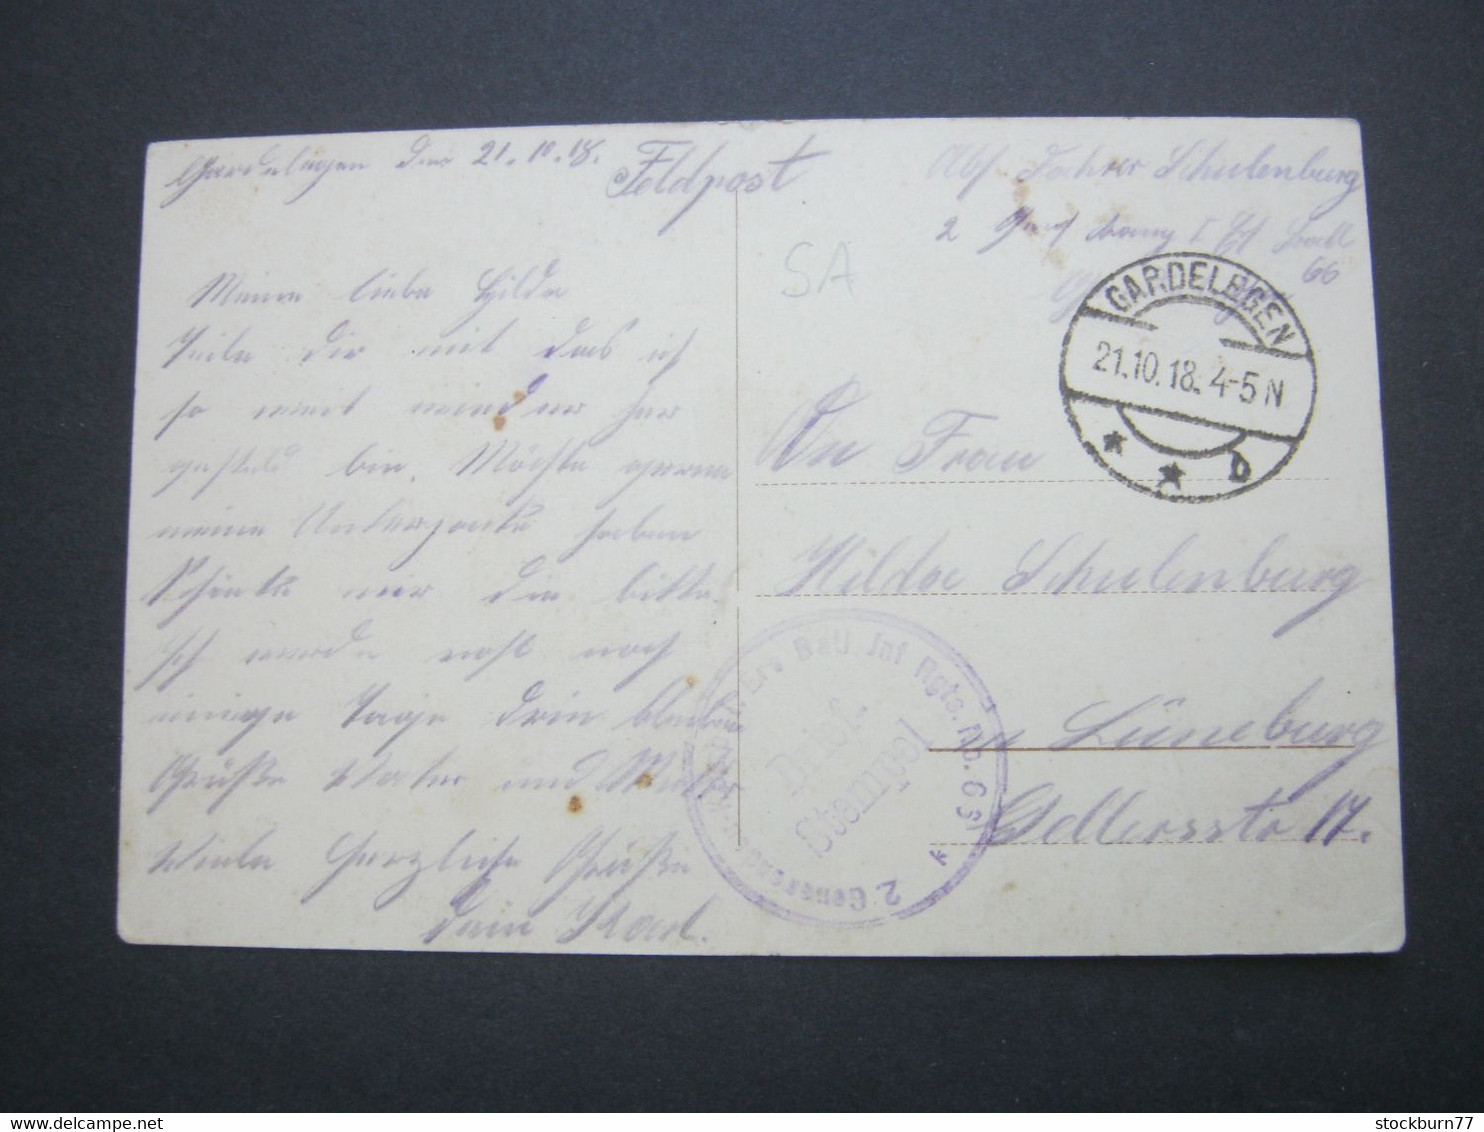 Gardelegen den 21.10.18.
Feldpost
Abs. Schulenburg
2
66
SA
GARDELEGEN
21.10.18. 4-5 N
* * b
Meine liebe Hilde
Teile dir mit das ich
so weit wieder her
gesteld bin. Möchte gerne
meine Unterjacke haben
Schicke mir die bitte.
Ich werde wohl noch
einige Tage drin bleiben
Grüße Vater und Mutter
Viele herzliche Grüße
dein Karl.
An Frau
Hilde Schulenburg
in Lüneburg
Gellersstr 17.
2. Genesenden Ers Batl. Inf Rgts. No.
Brief-
Stempel
stockburn77